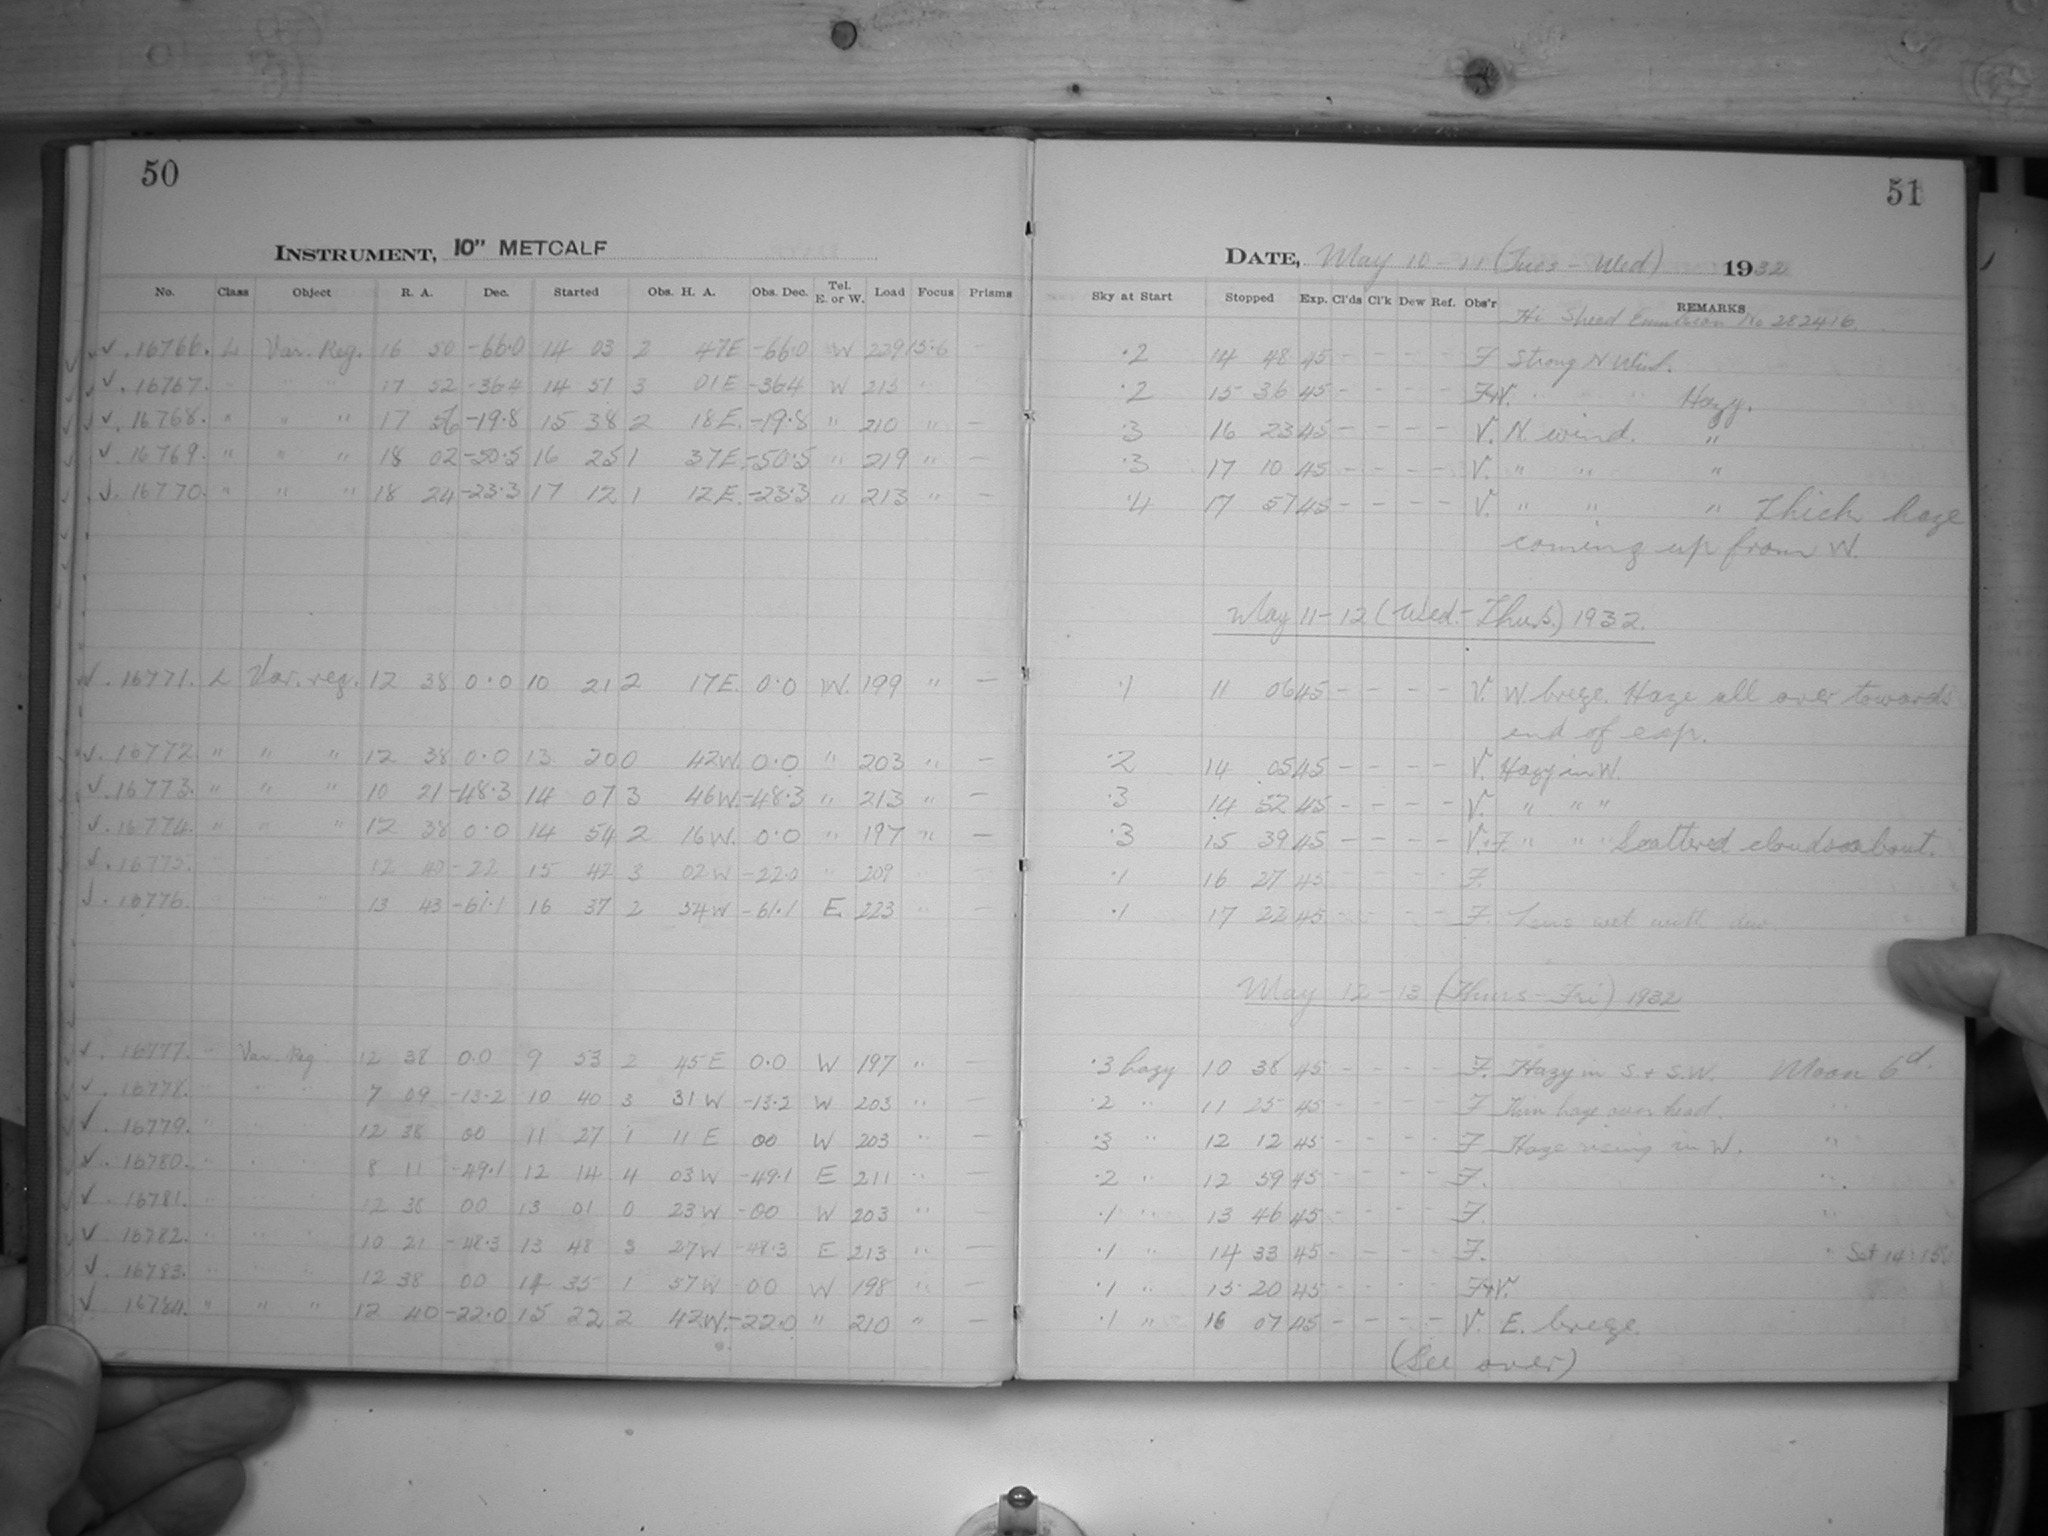 50
INSTRUMENT, 10" METCALF
No. Class Object R. A. Dec. Started Obs. H. A. Obs. Dec. Tel. E. or W. Load Focus Prisms
√ . 16766. L Var. Reg. 16 50 -66.0 14 03 2 47E -66.0 W 229 15.6 -
√ . 16767. " " " 17 52 -36.4 14 51 3 01E -36.4 W 215 " -
√ . 16768. " " " 17 56 -19.8 15 38 2 18E. -19.8 " 210 " -
√ . 16769. " " " 18 02 -50.5 16 25 1 37E. -50.5 " 219 " -
√ . 16770. " " " 18 24 -23.3 17 12 1 12E. -23.3 " 213 " -
√ . 16771. L Var. reg. 12 38 0.0 10 21 2 17E. 0.0 W. 199 " -
√ . 16772. " " " 12 38 0.0 13 20 0 42W. 0.0 " 203 " -
√ . 16773. " " " 10 21 -48.3 14 07 3 46W. -48.3 " 213 " -
√ . 16774. " " " 12 38 0.0 14 54 2 16W. 0.0 " 197 " -
√ . 16775. 12 40 -22 15 42 3 02W -22.0 " 209 " -
√ . 16776. 13 43 -61.1 16 37 2 54W -61.1 E 223 " -
√ . 16777. " Var. Reg. 12 38 0.0 9 53 2 45E 0.0 W 197 " -
√ . 16778. " " " 7 09 -13.2 10 40 3 31W -13.2 W 203 " -
√ . 16779. " " " 12 38 00 11 27 1 11E 00 W 203 " -
√ . 16780. " " " 8 11 -49.1 12 14 4 03W -49.1 E 211 " -
√ . 16781. " " " 12 38 00 13 01 0 23W -00 W 203 " -
√ . 16782. " " " 10 21 -48.3 13 48 3 27W -48.3 E 213 " -
√ . 16783. " " " 12 38 00 14 35 1 57W 00 W 198 " -
√ . 16784. " " " 12 40 -22.0 15 22 2 42W. -22.0 " 210 " -
51
DATE, May 10-11 (Tues - Wed) 1932
Sky at Start Stopped Exp. Cl'ds Cl'k Dew Ref. Obs'r REMARKS
Hi Speed Emulsion No 282416.
.2 14 48 45 - - - - F Strong N Wind.
.2 15 36 45 - - - - F+V. " " " Hazy.
.3 16 23 45 - - - - V. N. wind. "
.3 17 10 45 - - - - V. " " "
.4 17 57 45 - - - - V. " " " Thick haze
coming up from W.
May 11-12 (Wed.-Thurs.) 1932.
.1 11 06 45 - - - - V. W. breze. Haze all over towards
end of exp.
.2 14 05 45 - - - - V. Hazy in W.
.3 14 52 45 - - - - V. " " "
.3 15 39 45 - - - - V.+F. " " " Scattered clouds about.
.1 16 27 45 - - - - F.
.1 17 22 45 - - - - F. Lens wet with dew
May 12-13 (Thurs-Fri) 1932
.3 hazy 10 38 45 - - - - F. Hazy in S + S.W. Moon 6d.
.2 " 11 25 45 - - - - F Thin haze over head. "
.3 " 12 12 45 - - - - F Haze rising in W. "
.2 " 12 59 45 - - - - F. "
.1 " 13 46 45 - - - - F. "
.1 " 14 33 45 - - - - F. " Set 14:15
.1 " 15 20 45 - - - - F+V.
.1 " 16 07 45 - - - - V. E. breze.
(See over)